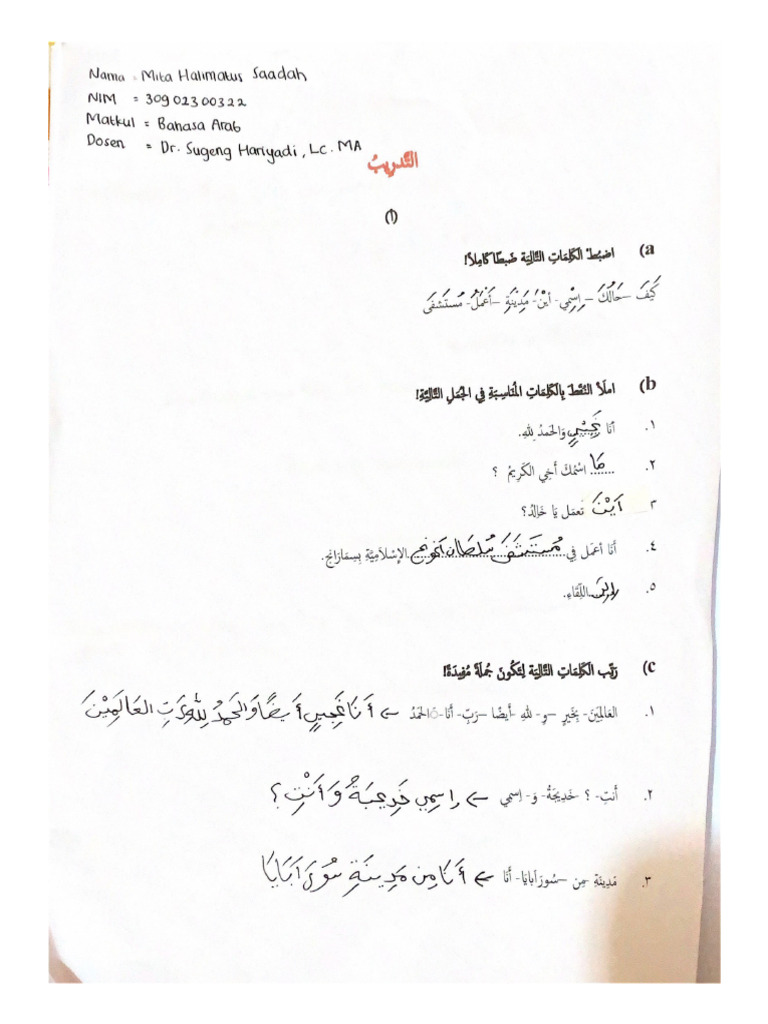 Nama : Mita Halimatus Saadah
NIM = 30902300322
Matkul = Bahasa Arab
Dosen = Dr. Sugeng Hariyadi, Lc. MA
التَّدرِيبُ
(أ)
(a اضبُطْ الكَلِمَاتِ التَّالِيَة ضَبطًا كَامِلاً!
كَيفَ – حَالُكَ – اِسْمِي - أَيْنَ - مَدِيْنَةِ – أَعْمَلُ - مُسْتَشفَى
(b املَأ النُقَطَ بِالكَلِمَاتِ المُنَاسِبَةِ فِي الجُمَلِ التَّالِيَّةِ!
١. أنَا بِخَيْرٍ وَالحَمدُ لِلهِ.
٢. مَا اسْمُكَ أخِي الكَرِيمُ ؟
٣ اَيْنَ تَعمَل يَا خَالِدُ؟
٤. أنَا أعمَل فِي مُسْتَشْفَى سُلْطَان اَغُونج الإسْلَامِيَّةِ بِسِمَارَانج.
٥. اللِّقَاءِ.
(c رَتِّب الكَلِمَاتِ التَّالِيَة لِتَكُونَ جُملَةً مُفِيدَةً!
١. العَالَمِينَ- بِخَيرٍ – وِ- للهِ -أيضًا –رَبِّ- أنَا- الحَمدُ ← أَنَا بِخَيْرٍ أَيضًا وَالحَمدُ لِلّهِ رَبِّ العَالَمِيْنَ
٢. أنتِ- ؟ - خَدِيجَةُ- وَ- اِسمِي ← اِسمِي خَدِيجَةُ وَأَنْتِ؟
٣. مَدِينَةِ –مِن –سُورَابَايَا- أنَا ← أَنَا مِن مَدِينَةِ سُورَابَايَا